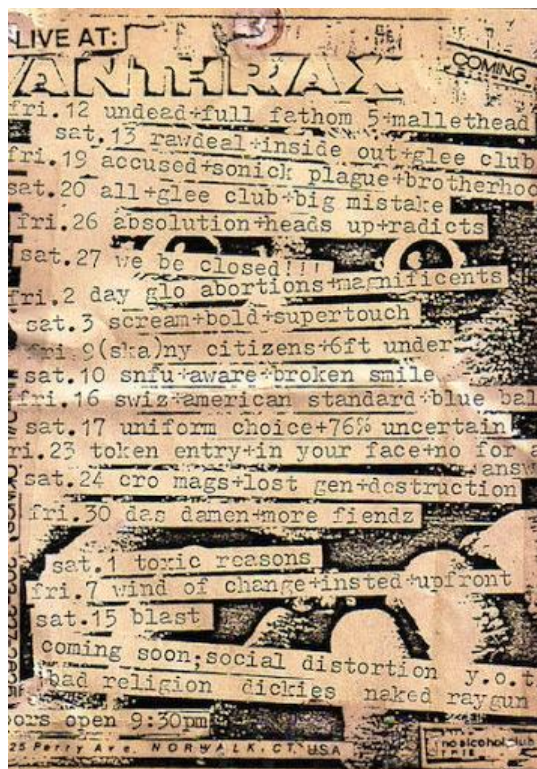 LIVE AT:
ANTHRAX
COMING
fri.12 undead+full fathom 5+mallethead
sat.13 rawdeal+inside out+glee club
fri.19 accused+sonick plague+brotherhoo
sat.20 all+glee club+big mistake
fri.26 absolution+heads up+radicts
sat.27 we be closed!!!
fri.2 day glo abortions+magnificents
sat.3 scream+bold+supertouch
fri.9(ska)ny citizens+6ft under
sat.10 snfu+aware+broken smile
fri.16 swiz+american standard+blue bal
sat.17 uniform choice+76% uncertain
ri.23 token entry+in your face+no for a
answ
sat.24 cro mags+lost gen+destruction
fri.30 das damen+more fiendz
sat.1 toxic reasons
fri.7 wind of change+insted+upfront
sat.15 blast
coming soon;social distortion y.o.t
bad religion dickies naked raygun
oors open 9:30pm
25 Perry Ave. NORWALK, CT. USA
no alcohol club